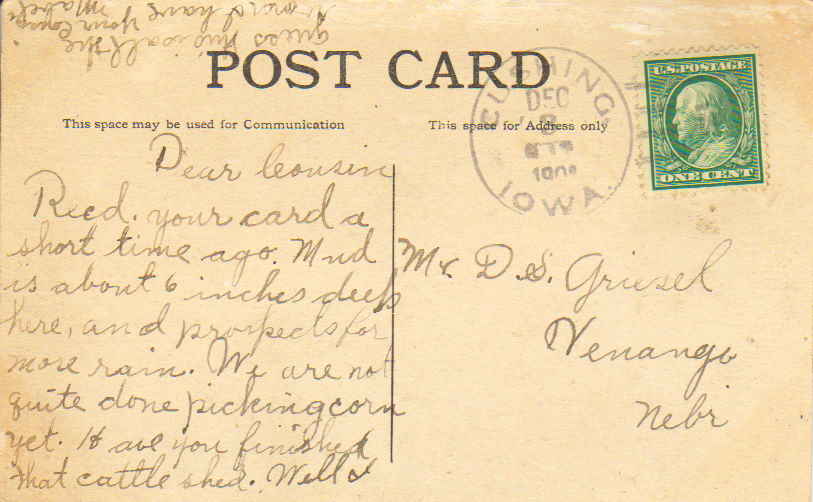 POST CARD
This space may be used for Communication
This space for Address only
CUSHING
DEC
8
190
IOWA
U.S. POSTAGE
ONE CENT
Dear Cousin
Recd. your card a
short time ago. Mud
is about 6 inches deep
here, and prospects for
more rain. We are not
quite done picking corn
yet. Have you finished
that cattle shed. Well I
guess this is all the
have your
Mabel
Mr. D.S. Griesel
Venango
Nebr